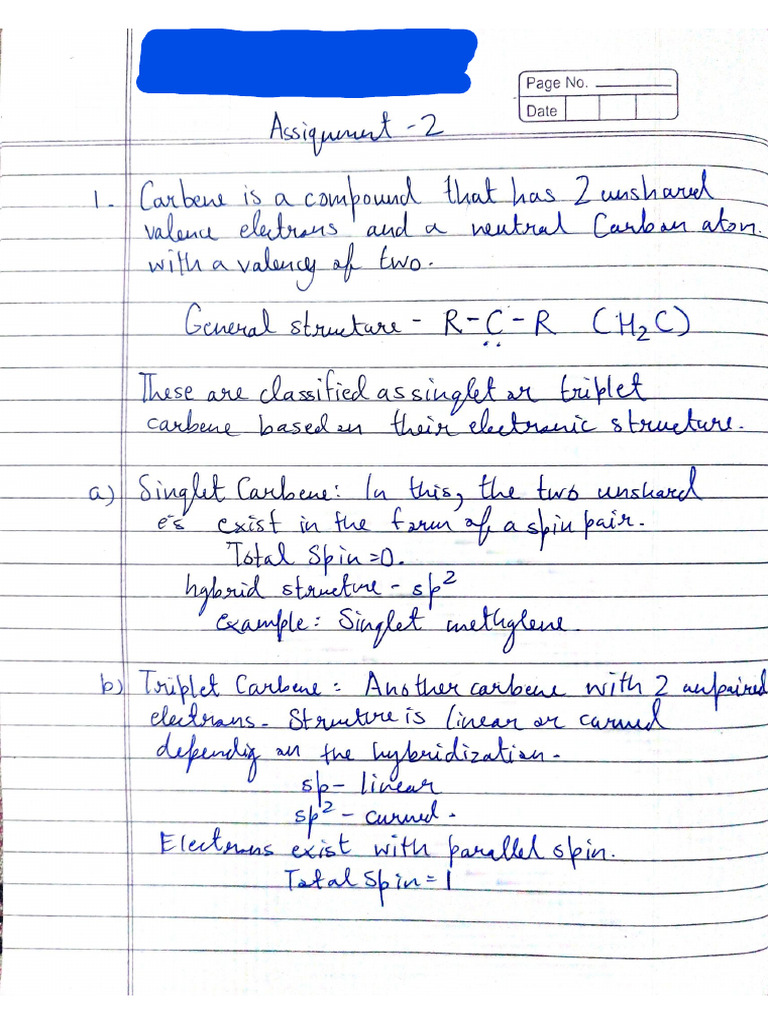 Page No.
Date
Assignment - 2
1. Carbene is a compound that has 2 unshared
valence electrons and a neutral Carbon atom.
with a valency of two.
General structure - R-C̤-R (H₂C)
These are classified as singlet or triplet
carbene based on their electronic structure.
a) Singlet Carbene: In this, the two unshared
e⁻s exist in the form of a spin pair.
Total Spin = 0.
hybrid structure - sp²
example: Singlet methylene.
b) Triplet Carbene: Another carbene with 2 unpaired
electrons. Structure is linear or curved
dependig on the hybridization.
sp - linear
sp² - curved.
Electrons exist with parallel spin.
Total Spin = 1